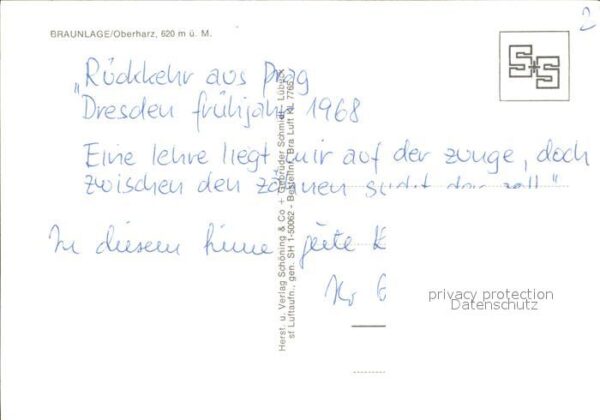 BRAUNLAGE/Oberharz, 620 m ü. M.
2
S+S
„Rückkehr aus prag
Dresden frühjahr 1968
Eine lehre liegt mir auf der zunge, doch
zwischen den zähnen sucht der zoll"
In diesem Sinne
Herst. u. Verlag Schöning & Co + Gebrüder Schmidt - Lübeck
sf Luftaufn., gen. SH 1-50062 - Bestellnr. Bra Luft KL 7765
privacy protection
Datenschutz